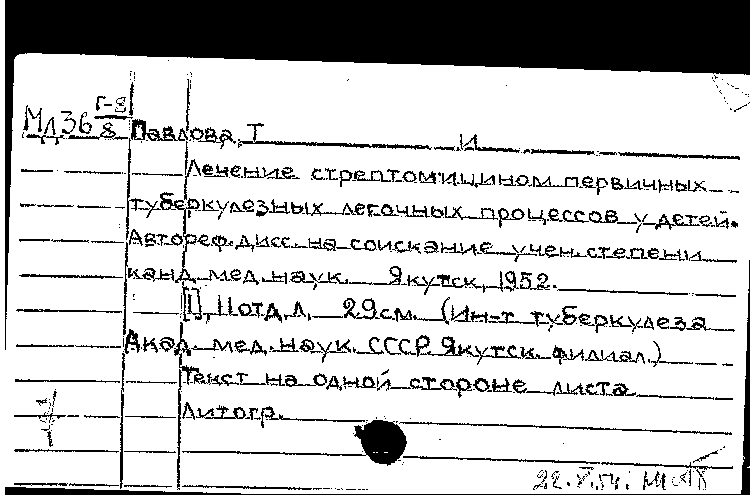 МД 36 Г-8/8 Павлова, Т И
Лечение стрептомицином первичных
туберкулезных легочных процессов у детей.
Автореф. дисс. на соискание учен. степени
канд. мед. наук. Якутск, 1952.
[1], 11 отд. л. 29см. (Ин-т туберкулеза
Акад. мед. наук СССР. Якутск. филиал.)
Текст на одной стороне листа
Литогр.
22.V.54.